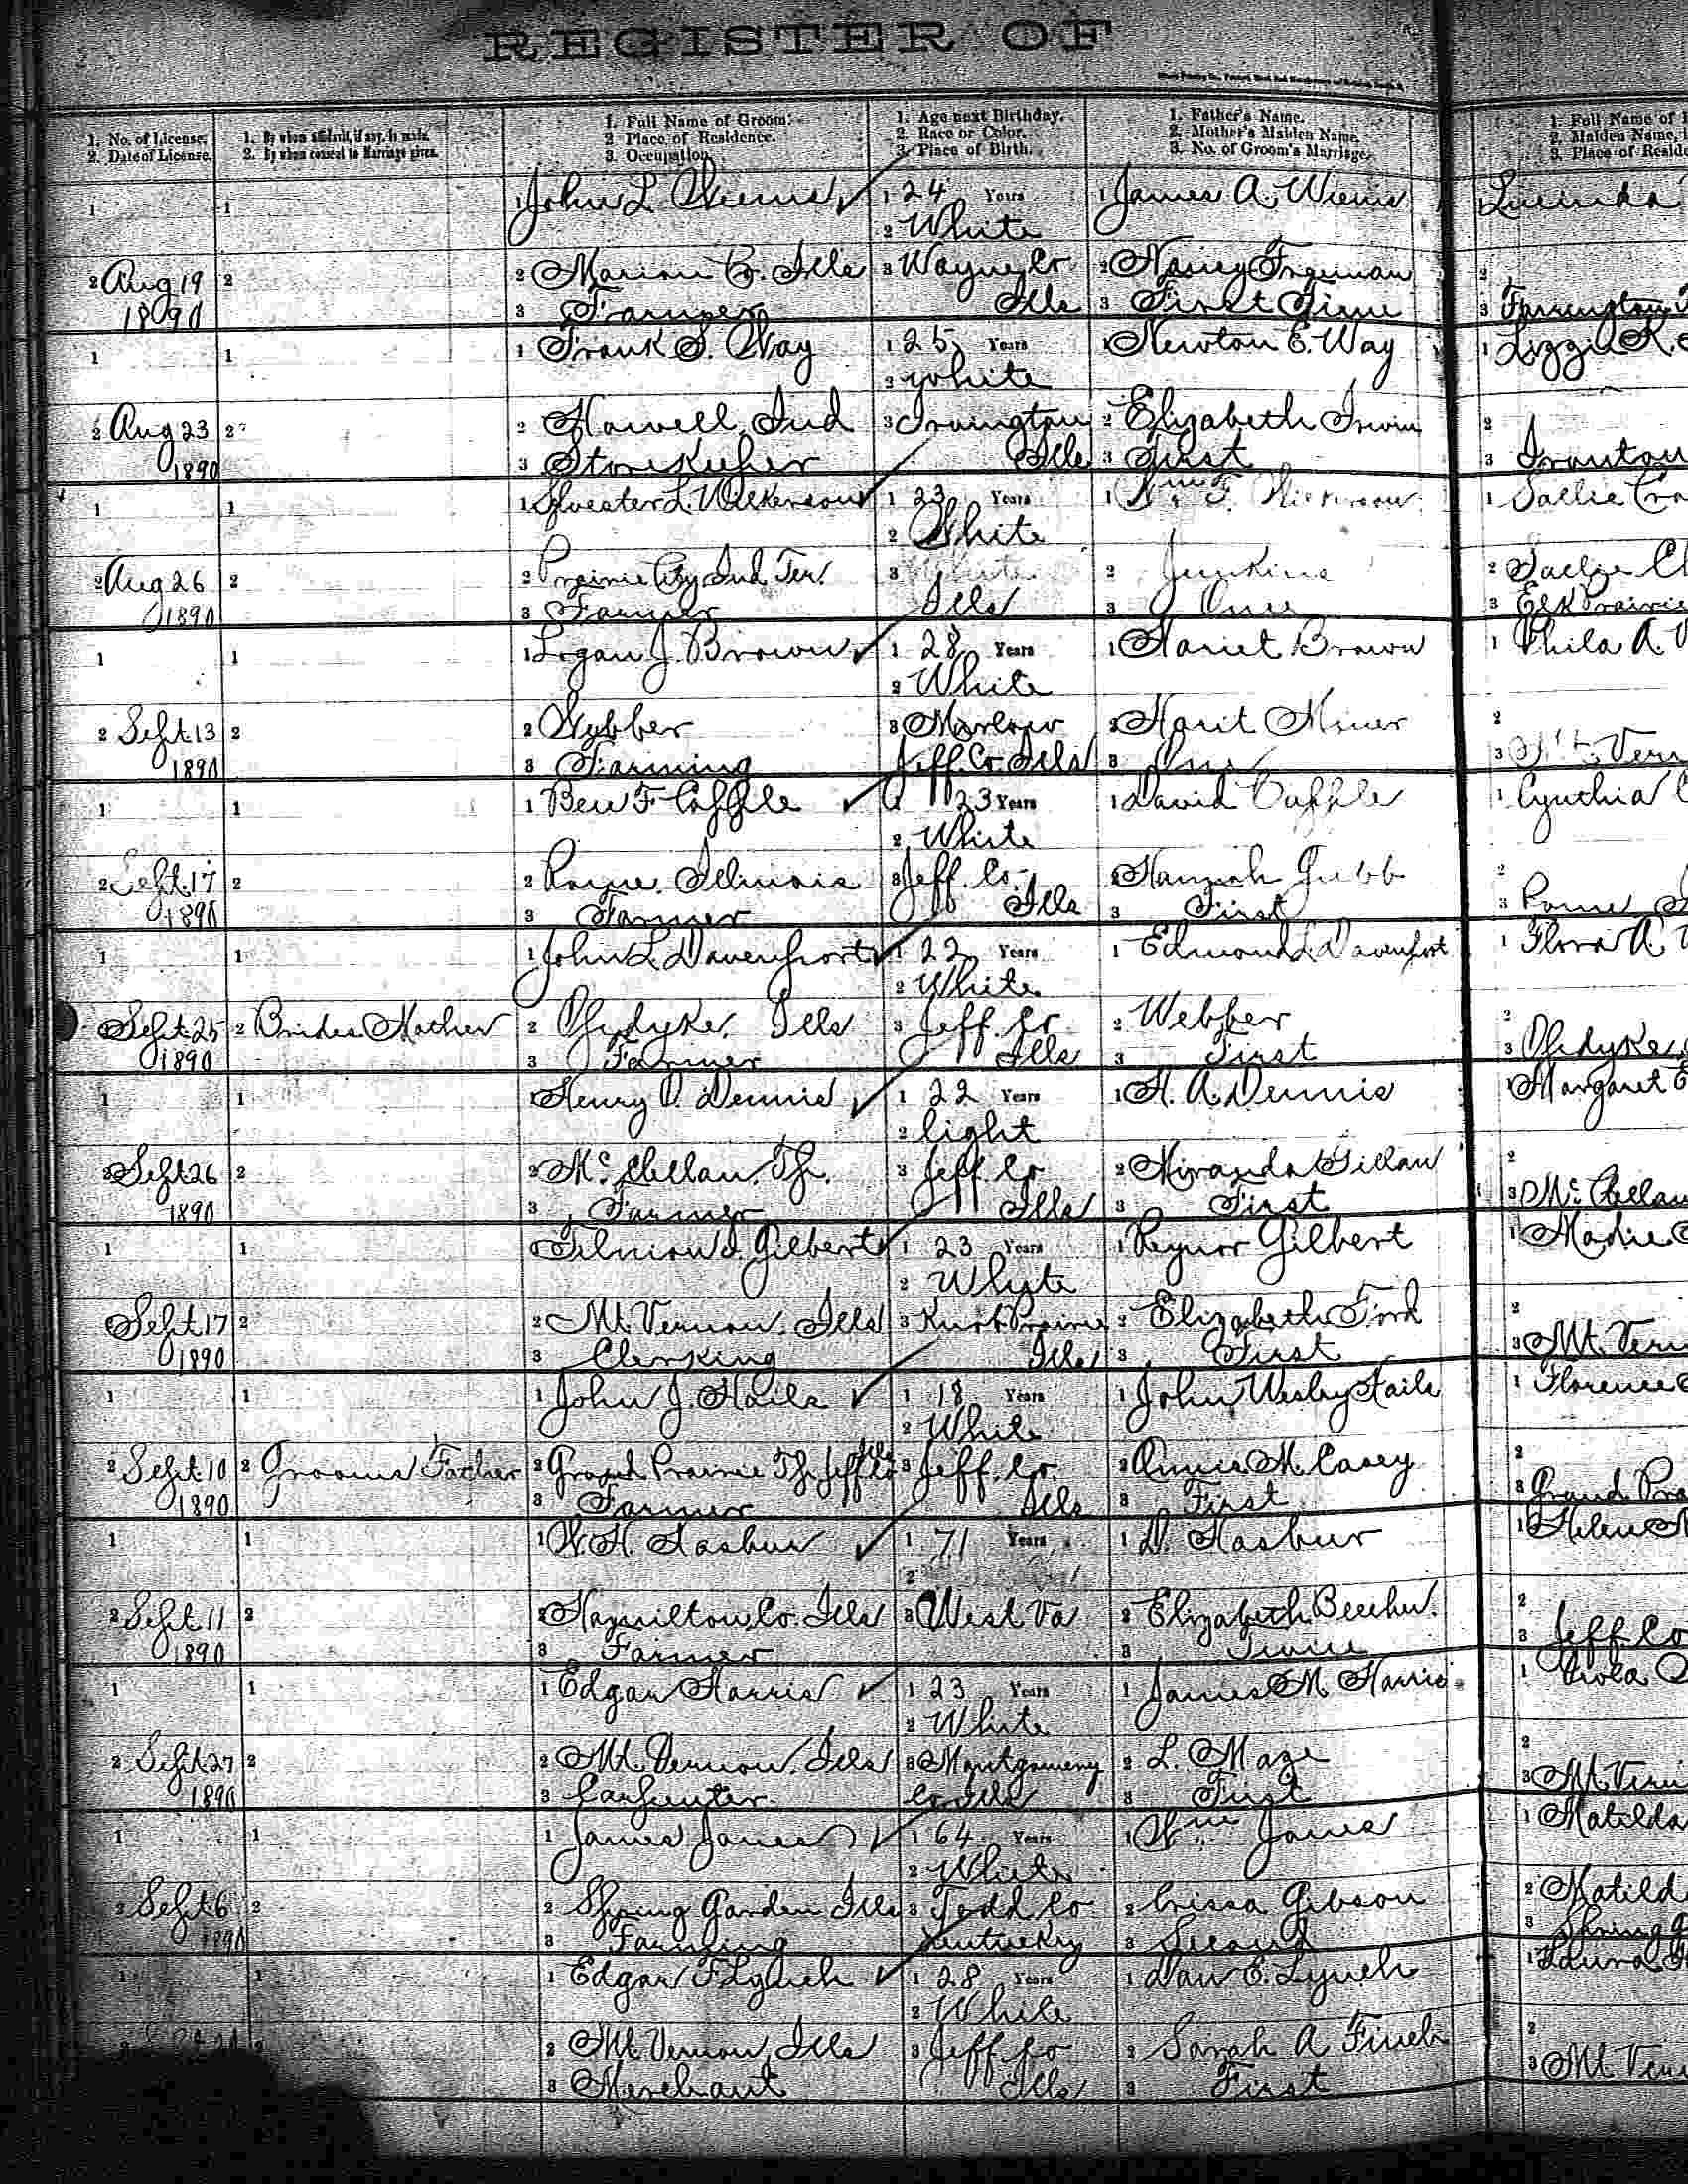 REGISTER OF
1. No. of License. 2. Date of License.
1. By whom affidavit, if any, is made. 2. By whom consent to Marriage given.
1. Full Name of Groom. 2 Place of Residence. 3. Occupation.
1. Age next Birthday. 2. Race or Color. 3. Place of Birth.
1. Father's Name. 2. Mother's Maiden Name. 3. No. of Groom's Marriage.
1. Full Name of 2. Maiden Name, 3. Place of Reside
1 1 1 John L. Wiems 1 24 Years 1 James A. Wiems Lucinda
2 White
2 Aug 19 2 2 Marion Co. Ills 3 Wayne Co 2 Nancy Freeman 2
1890 3 Farmer Ills 3 First Time 3 Farrington
1 1 1 Frank S. Way 1 25 Years 1 Newton E. Way 1 Lizzie R.
2 white
2 Aug 23 2 2 Howell, Ind 3 Irvington 2 Elizabeth Irwin 2
1890 3 Storekeeper Ills 3 First 3 Ironton
1 1 1 Sylvester L. Wilkerson 1 23 Years 1 Wm F. Wilkerson 1 Sallie
2 White
2 Aug 26 2 2 Prairie City Ind. Ter. 3 2 Junkins 2
1890 3 Farmer Ills 3 Once 3 Elk Prairie
1 1 1 Logan J. Brown 1 28 Years 1 Hariet Brown 1 Phila A.
2 White
2 Sept 13 2 2 Webber 3 Marlow 2 Harit Miner 2
1890 3 Farming Jeff. Co Ills 3 3 Mt. Vern
1 1 1 Ben F Copple 1 23 Years 1 David Copple 1 Cynthia
2 White
2 Sept. 17 2 2 Rome. Illinois 3 Jeff. Co. 2 Hannah Gubb 2
1890 3 Farmer Ills 3 First 3 Rome
1 1 1 John L Davenport 1 22 Years 1 Edmond L Davenport 1 Flora A
2 White
2 Sept. 25 2 Brides Mother 2 Opdyke. Ills 3 Jeff. Co 2 Webber 2
1890 3 Farmer Ills 3 First 3 Opdyke
1 1 1 Henry O. Dennis 1 22 Years 1 H. A. Dennis 1 Margaret E
2 light
2 Sept 26 2 2 McClellan Tp. 3 Jeff Co 2 Miranda Gillan 2
1890 3 Farmer Ills 3 First 3 McClellan
1 1 1 Gilbert 1 23 Years 1 Gilbert 1
2 Whyte
2 Sept. 17 2 2 Mt. Vernon. Ills 3 Prairie 2 Elizabeth Ford 2
1890 3 Clerking Ills 3 First 3 Mt. Vern
1 1 1 John J. Hails 1 18 Years 1 John Wesley Hails 1 Florence
2 White
2 Sept. 10 2 Grooms Father 2 Grand Prairie Tp. Jeff Co Ills 3 Jeff. Co. 2 Annie M. Casey 2
1890 3 Farmer Ills 3 First 3 Grand Pra
1 1 1 W. H. Hasbur 1 71 Years 1 D. Hasbur 1 Helen
2
2 Sept. 11 2 2 Hamilton Co. Ills 3 West Va 2 Elizabeth Beecher. 2
1890 3 Farmer 3 Twice 3 Jeff Co
1 1 1 Edgar Harris 1 23 Years 1 James M Harris 1 Viola
2 White
2 Sept. 27 2 2 Mt. Vernon. Ills 3 Montgomery 2 L. Maze 2
1890 3 Carpenter Co. Ills 3 First 3 Mt. Vern
1 1 1 James Jones 1 64 Years 1 Wm Jones 1 Matilda
2 White
2 Sept. 6 2 2 Spring Garden Ills 3 Todd Co 2 Crissa Gibson 2 Matild
1890 3 Farming Kentucky 3 Second 3 Spring G
1 1 1 Edgar F Lynch 1 28 Years 1 Dan E. Lynch 1 Laura
2 White
2 2 Mt. Vernon, Ills 3 Jeff Co 2 Sarah A Finch 2
3 Merchant Ills 3 First 3 Mt Vern